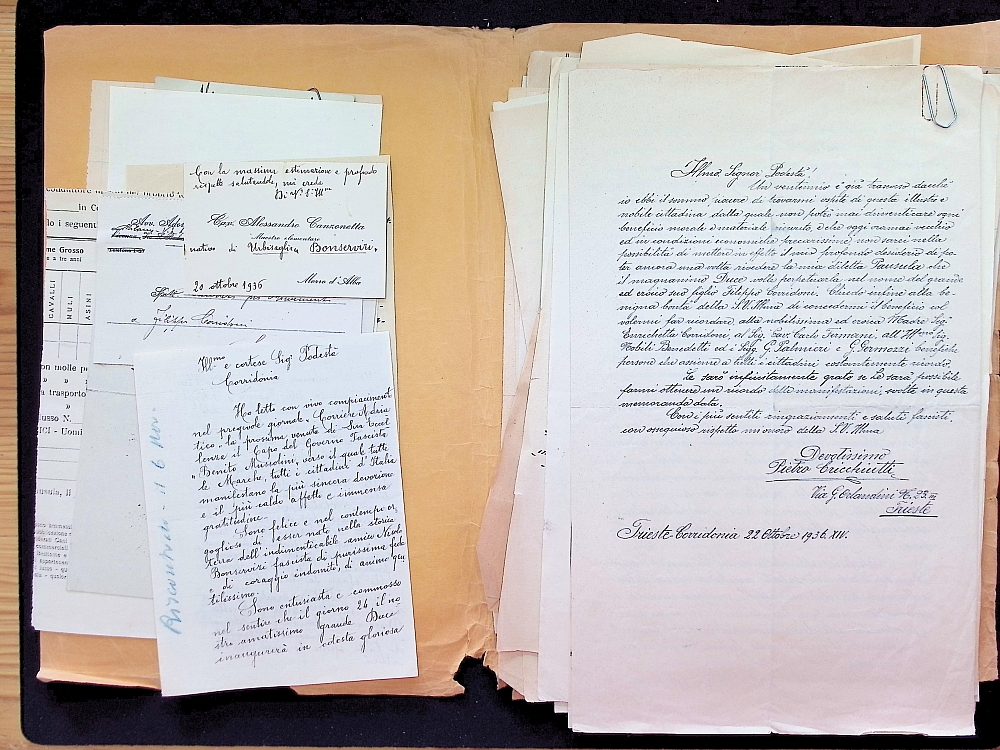 conduttore
in Co
lo i seguent
me Grosso
e a tre anni
CAVALLI
MULI
ASINI
on molle p
» »
a trasporto
»
usso N.
ICI - Uomi
Con la massima estimazione e profondo
rispetto salutandola, mi creda
Di V. S. Ill.ma
Avv.
Cav. Alessandro Canzonetta
Maestro elementare
nativo di Urbisaglia Bonservizi,
20 ottobre 1936
Massa d'Alba
a Filippo Corridoni
Riscontrato - il 6 Nov.
Ill.mo e cortese Sig. Podestà
Corridonia
Ho letto con vivo compiacimento
nel pregevole giornale "Corriere Adria
tico" la prossima venuta di Sua Eccel
lenza il Capo del Governo Fascista
"Benito Mussolini, verso il quale tutte
le Marche, tutti i cittadini d'Italia
manifestano la più sincera devozione
e il più caldo affetto e immensa
gratitudine.
Sono felice e nel contempo or
goglioso di esser nato nella storica
terra dell'indimenticabile amico Nicola
Bonservizi fascista di purissima fede
e di coraggio indomito, di animo gen
tilissimo.
Sono entusiasta e commosso
nel sentire che il giorno 26, il no
stro amatissimo grande Duce
inaugurerà in codesta gloriosa
Illmo Signor Podestà!
Un ventennio è già trascorso dacchè
io ebbi il sommo onore di trovarmi ospite di questa illustre e
nobile cittadina, dalla quale non potrò mai dimenticare ogni
beneficio morale e materiale ricevuto, e che oggi oramai vecchio
ed in condizioni economiche precarissime non sarei nella
possibilità di mettere in effetto il mio profondo desiderio di po-
ter ancora una volta rivedere la mia diletta Pausula che
il magnanimo Duce volle perpetuarla nel nome del grande
ed eroico suo figlio Filippo Corridoni. Chiedo infine alla be-
nigna bontà della S.V. Illma di concedermi il beneficio di
volermi far ricordare alla nobilissima ed eroica Madre Sig.
Enrichetta Corridoni, al Sig. Cav. Carlo Firmani, all'Illmo Sig.
Nobili Benedetti ed i Sigg. G. Palmieri e G. Germozzi benefiche
persone che assieme a tutti i cittadini costantemente ricordo.
Le sarò infinitamente grato se Le sarà possibile
farmi ottenere un ricordo delle manifestazioni svolte in questa
memoranda data.
Con i più sentiti ringraziamenti e saluti fascisti
con ossequioso rispetto mi onoro della S.V. Illma
Devotissimo
Pietro Cricchiutti
Via G. Orlandini N. 33. III
Trieste
Trieste-Corridonia 22 Ottobre 1936. XIV.